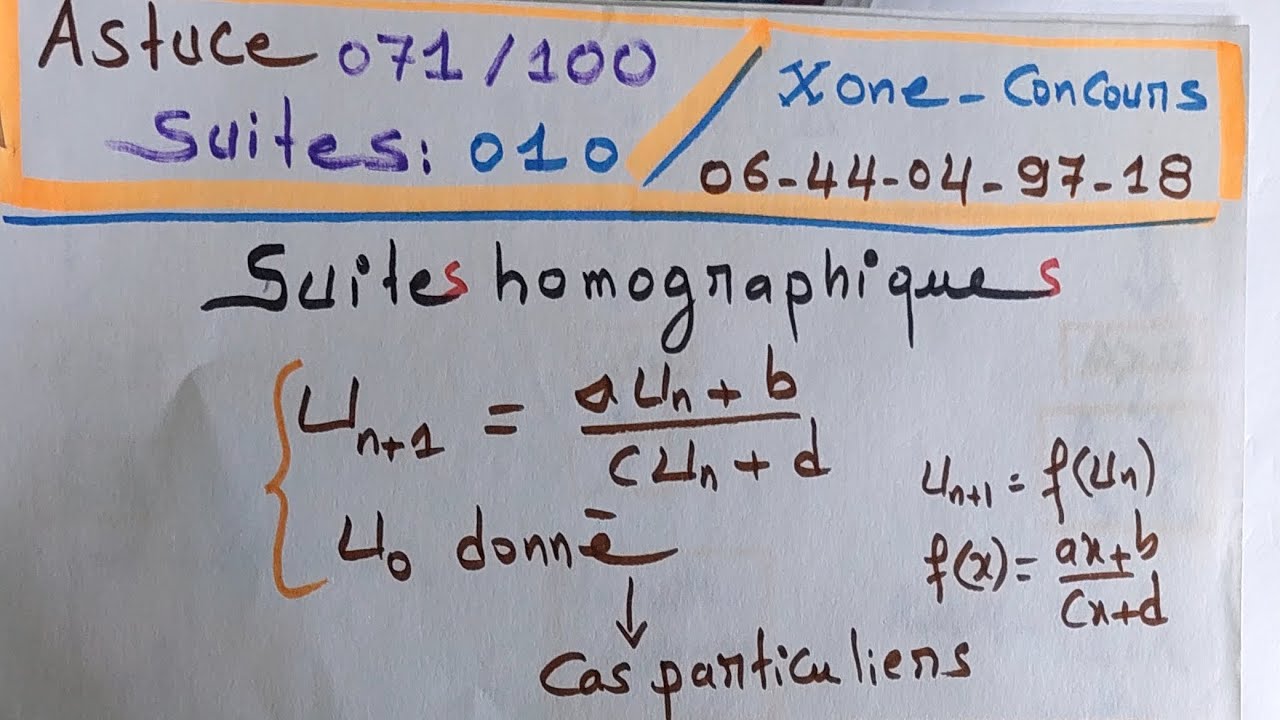 Astuce 071/100
Suites: 010
Xone-Concours
06-44-04-97-18
Suites homographiques
U_{n+1} = \frac{aU_n + b}{cU_n + d}
U_0 donné
U_{n+1} = f(U_n)
f(x) = \frac{ax+b}{cx+d}
Cas particuliers